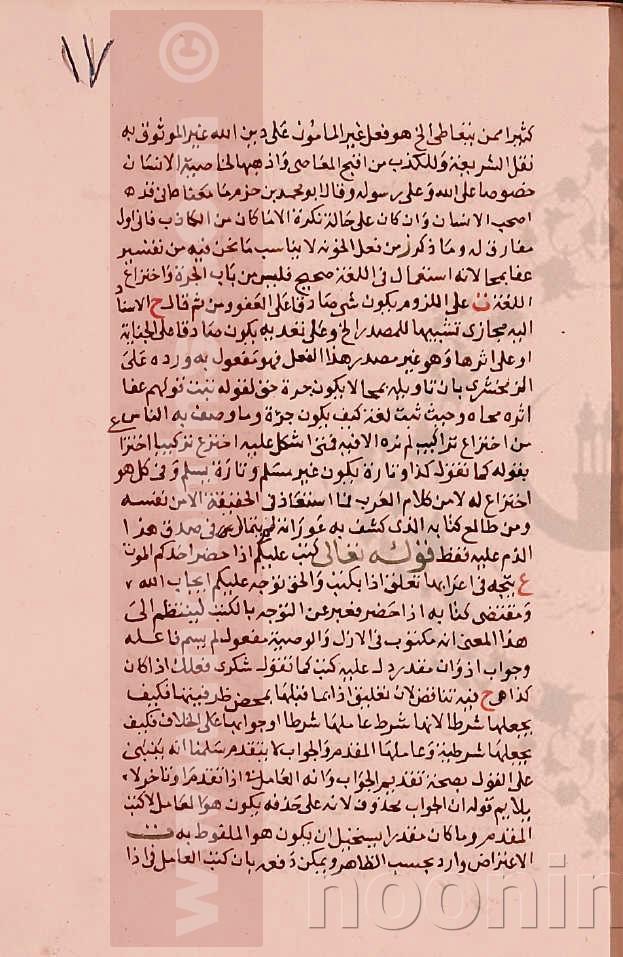 ١٧
كثيرا ممن يتعاطى الخ هو فعل غير المامون على دين الله غير الموثوق به
نقل الشريعة وللكذب من اقبح المعاصى واذهبها لخاصية الانسان
خصوصا على الله وعلى رسوله وقال ابو محمد بن حزم
اصحب الانسان وان كان على حالة نكرة الا ما كان من الكاذب فانى اول
مفارق له وما ذكر من فعل الخونة لا يناسب ما نحن فيه من تفسير
عفا بمحا لانه استعمال فى اللغة صحيح فليس من باب الجرءة واختراع
اللغة ت على اللزوم يكون شى صادقا على العفو ومن ثم قال ح الاسناد
اليه مجازى تشبيها للمصدر الخ وعلى تعديه يكون صادقا على الجناية
او على اثرها وهو غير مصدر هذا الفعل فهو مفعول به ورده على
الزمخشرى بان تاويله بمحا لا يكون جرءة حق لقوله ثبت قولهم عفا
اثره محاه وحيث ثبت لغة كيف يكون جرءة وما وصف به الناس ع
من اختراع تراكيب لم نره الا فيه فتى اشكل عليه اخترع تركيبا
بقوله كما تقول كذا وتارة يكون غير سلم وتارة يسلم وفى كل هو
اختراع له لا من كلام العرب
ومن طالع كتابه الذى كشف به فى صدق هذا
الذم عليه فقط قوله تعالى كتب عليكم اذا حضر احدكم الموت
ع يتجه فى اعرابها تعلق اذا بكتب والحق توجه عليكم ايجاب الله
ومقتضى كتابه اذا حضر فعبر عن التوجه بالكتب لينتظم الى
هذا المعنى انه مكتوب فى الازل والوصية مفعول لم يسم فاعله
وجواب اذا وان مقدر دل عليه كتب كما تقول شكرى فعلك اذا كان
كذا ح فيه تناقض لان تعليق اذا بما قبلها بمحض ظرفيتها فكيف
يجعلها شرطا لانها شرط عاملها شرطا او جوابها على الخلاف فكيف
يجعلها شرطية وعاملها المقدم والجواب لا يتقدم سلمنا انه يبنى
على القول بصحة تقديم الجواب وانه العامل فى اذا تقدم او تاخر لا
يلايم قوله ان الجواب محذوف لانه على حذفه يكون هو العامل لا كتب
المقدم وما كان مقدرا يستحيل ان يكون هو الملفوظ به ت
الاعتراض وارد بحسب الظاهر ويمكن دفعه بان كتب العامل فى اذا
www
©
noonin